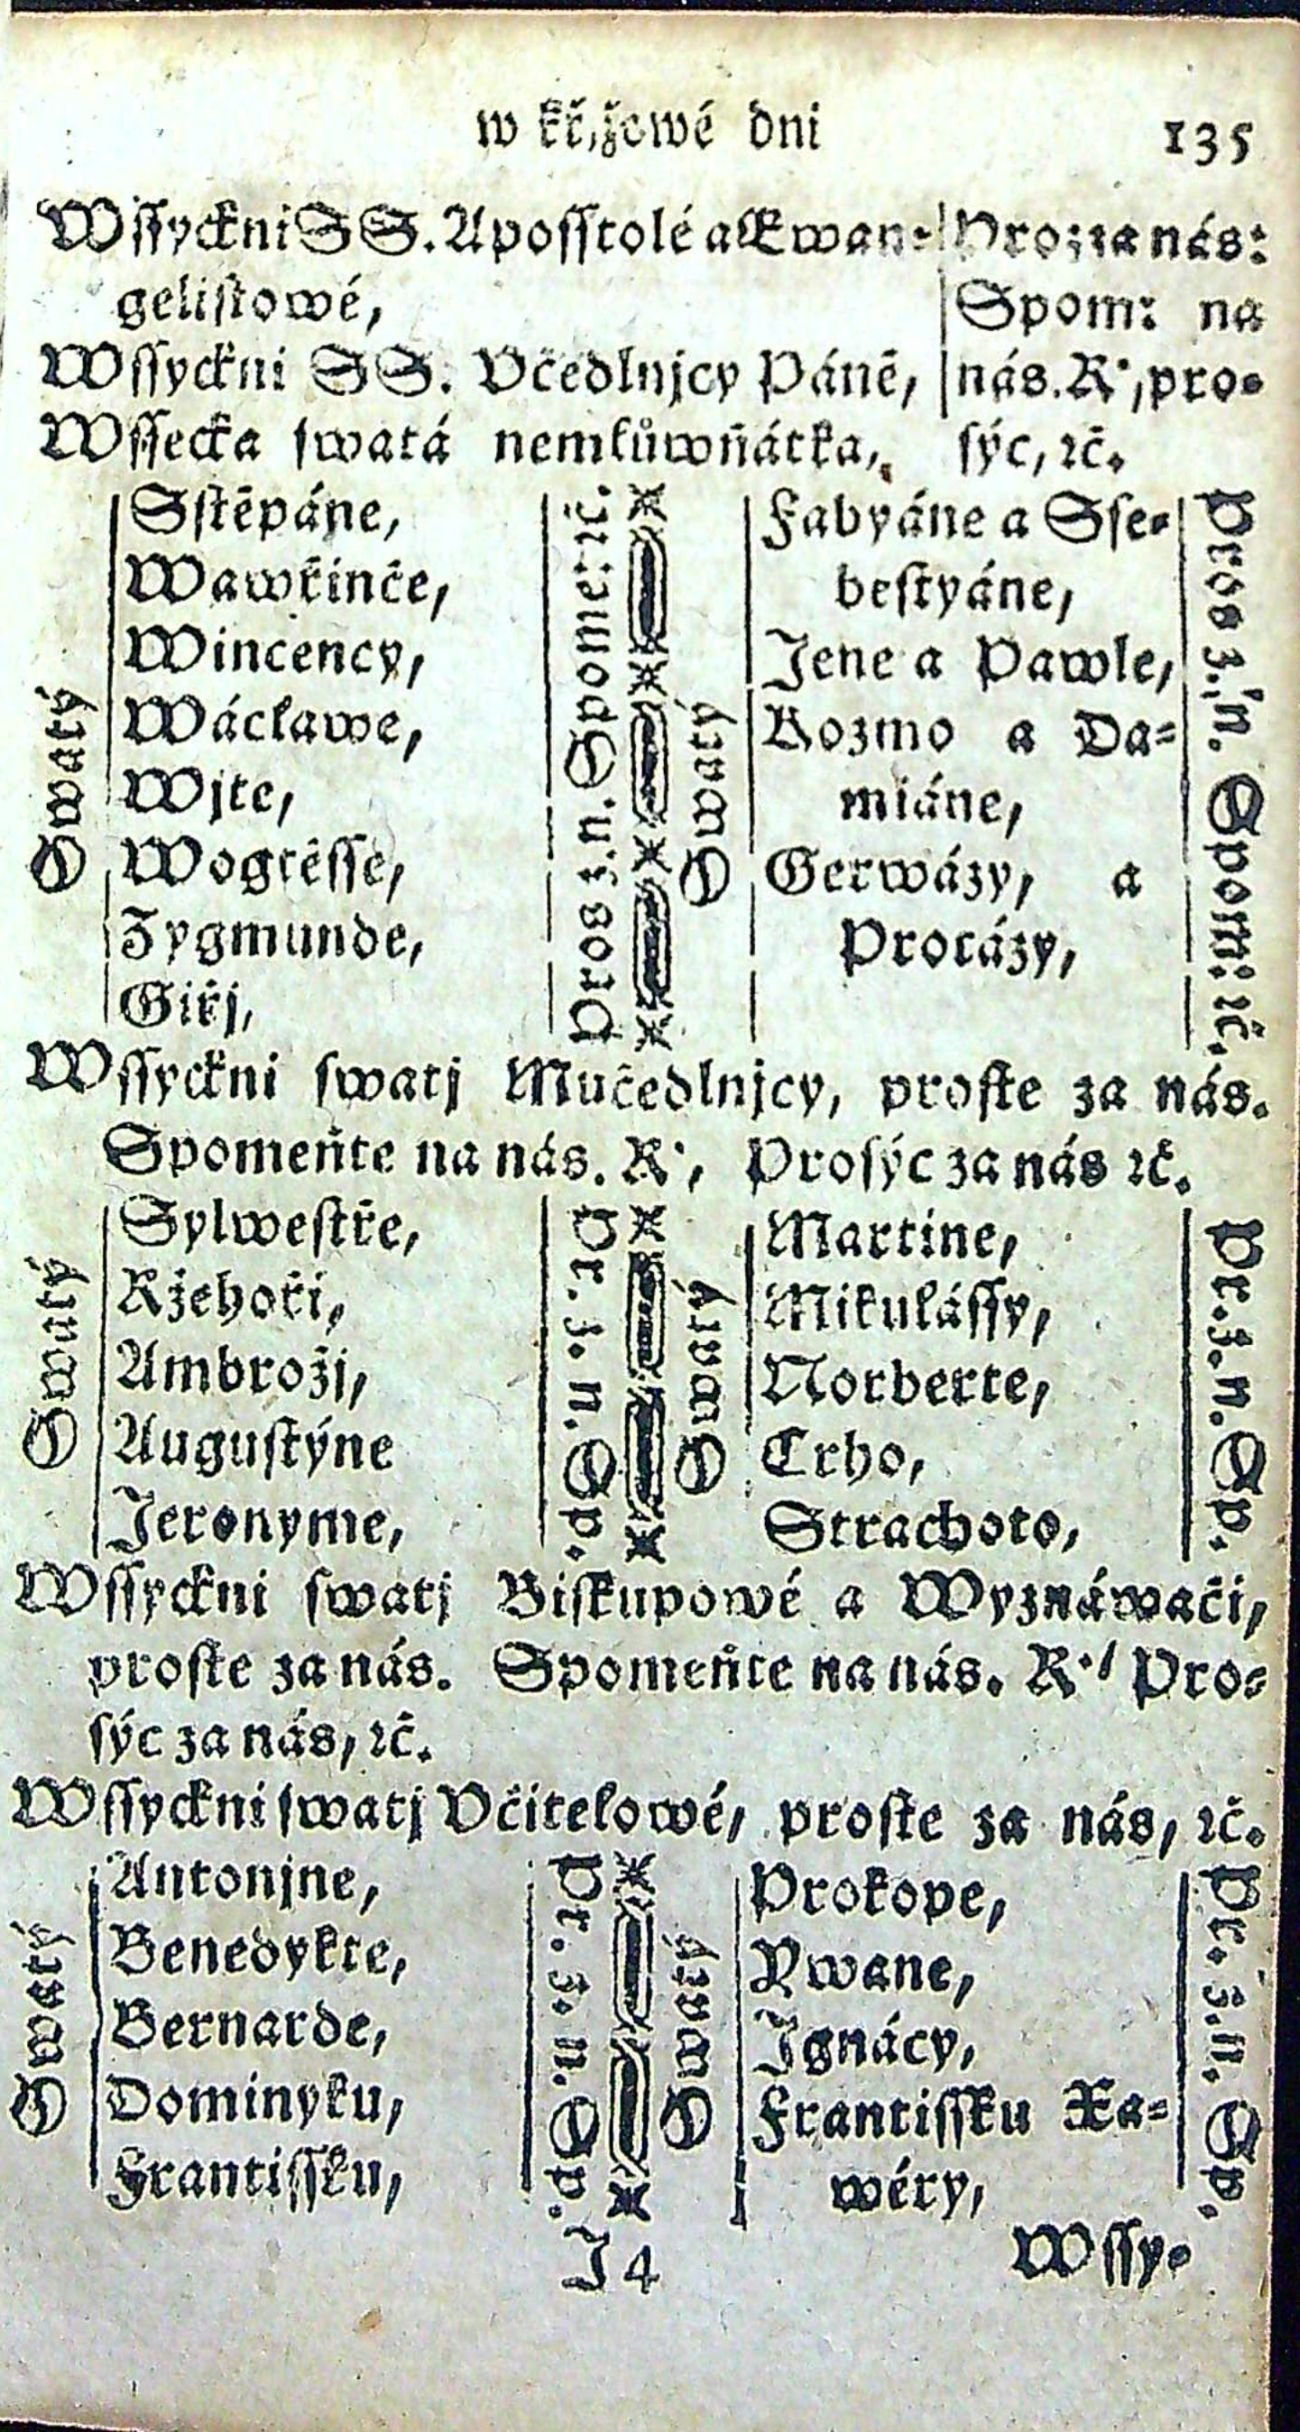 w křjžowé dni 135
Wssyckni SS. Aposstolé a Ewan- Pro: za nás:
gelistowé, Spom: na
Wssyckni SS. Včedlnjcy Páně, nás. R', pro-
Wssecka swatá nemluwňátka, sýc, ꝛč.
Swatý
Sstěpáne,
Wawřinče,
Wincency,
Wácławe,
Wjte,
Wogtěsse,
Zygmunde,
Giřj,
Pros z. n. Spome: ꝛč.
Swatý
Fabyáne a Sse-
bestyáne,
Jene a Pawle,
Kozmo a Da-
miáne,
Gerwázy, a
Protázy,
Pros z. n. Spom: ꝛč.
Wssyckni swatj Mučedlnjcy, proste za nás.
Spomeňte na nás. R', Prosýc za nás ꝛč.
Swatý
Sylwestře,
Ržehoři,
Ambrožj,
Augustýne
Jeronyme,
Pr. z. n. Sp.
Swatý
Martine,
Mikulássy,
Norberte,
Crho,
Strachoto,
Pr. z. n. Sp.
Wssyckni swatj Biskupowé a Wyznáwači,
proste za nás. Spomeňte na nás. R'/ Pro-
sýc za nás, ꝛč.
Wssyckni swatj Včitelowé, proste za nás, ꝛč.
Swatý
Antonjne,
Benedykte,
Bernarde,
Dominyku,
Frantissku,
Pr. z. n. Sp.
Swatý
Prokope,
Ywane,
Ignácy,
Frantissku Xa-
wéry,
Pr. z. n. Sp.
J 4 Wssy-